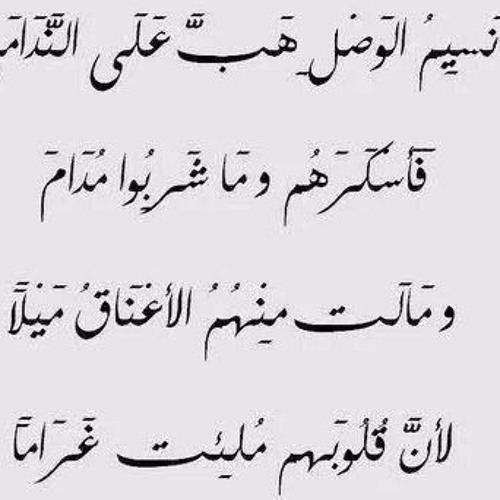 نَسِيمُ الوَصْلِ هَبَّ عَلَى النَّدَامَى
فَأَسْكَرَهُم وَمَا شَرِبُوا مُدَامَ
وَمَالَت مِنْهُمُ الأَعْنَاقُ مَيْلاً
لأَنَّ قُلُوبَهم مُلِئت غَرَاماً